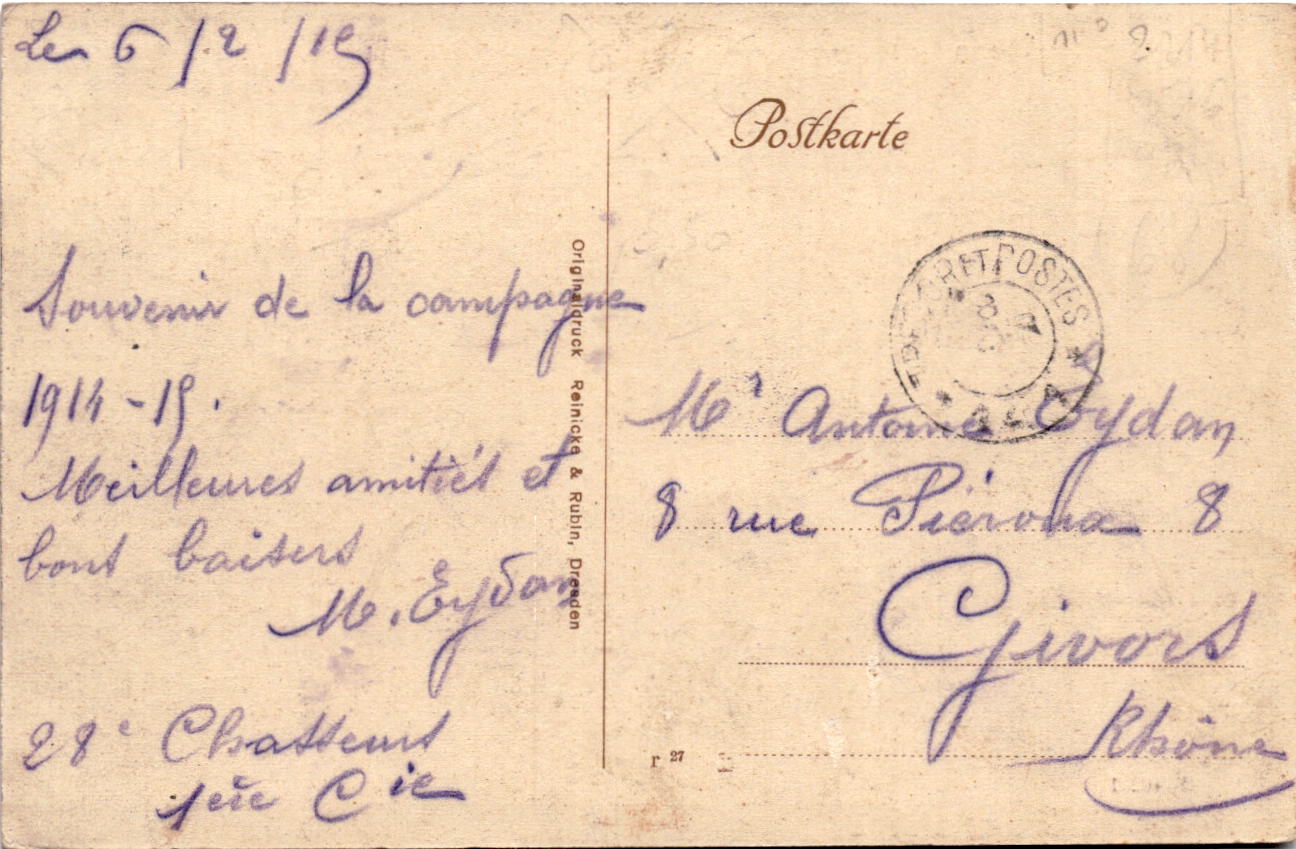 Le 6/2/15
Souvenir de la campagne
1914-15.
Meilleures amitiés et
bons baisers
M. Eydan
28e Chasseurs
1ère Cie
Originaldruck Reinicke & Rubin, Dresden
Postkarte
TRESOR ET POSTES
Mr Antoine Eydan
8 rue 8
Givors
Rhône
r 27